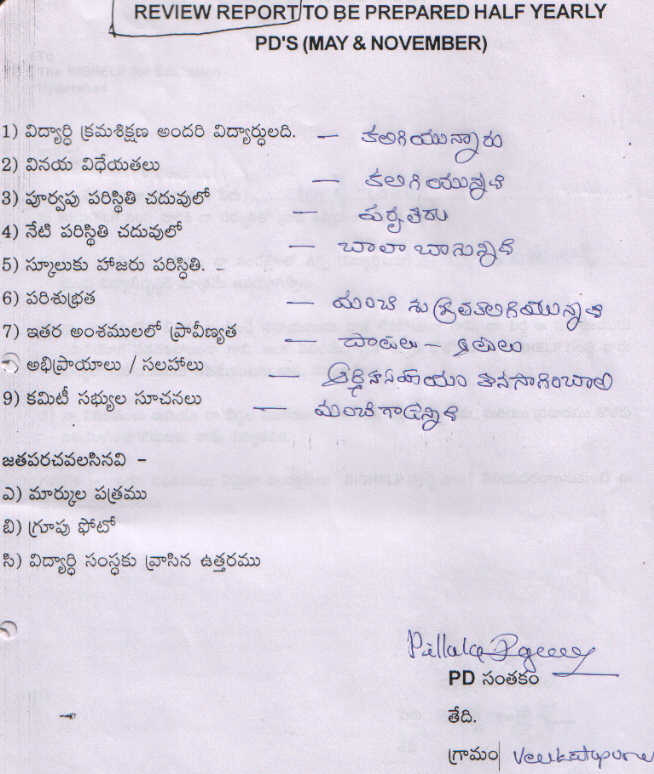 REVIEW REPORT TO BE PREPARED HALF YEARLY
PD'S (MAY & NOVEMBER)
1) విద్యార్ధి క్రమశిక్షణ అందరి విద్యార్ధులది. — కలిగియున్నారు
2) వినయ విధేయతలు — కలిగియున్నవి
3) పూర్వపు పరిస్థితి చదువులో —
4) నేటి పరిస్థితి చదువులో — చాలా బాగున్నది
5) స్కూలుకు హాజరు పరిస్ధితి.
6) పరిశుభ్రత — మంచి శుభ్రత కలిగియున్నవి
7) ఇతర అంశములలో ప్రావీణ్యత — పాటలు - ఆటలు
అభిప్రాయాలు / సలహాలు — ఆర్ధికసహాయం కొనసాగించాలి
9) కమిటీ సభ్యుల సూచనలు — మంచిగా ఉన్నవి
జతపరచవలసినవి –
ఎ) మార్కుల పత్రము
బి) గ్రూపు ఫోటో
సి) విద్యార్ధి సంస్ధకు వ్రాసిన ఉత్తరము
PD సంతకం
తేది.
గ్రామం